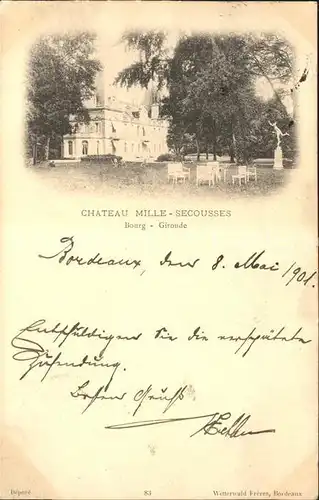 CHATEAU MILLE-SECOUSSES
Bourg - Gironde
Bordeaux, den 8. Mai 1901.
Entschuldigen Sie die verspätete
Zusendung.
Besten Gruß
Déposé
83
Wetterwald Frères, Bordeaux